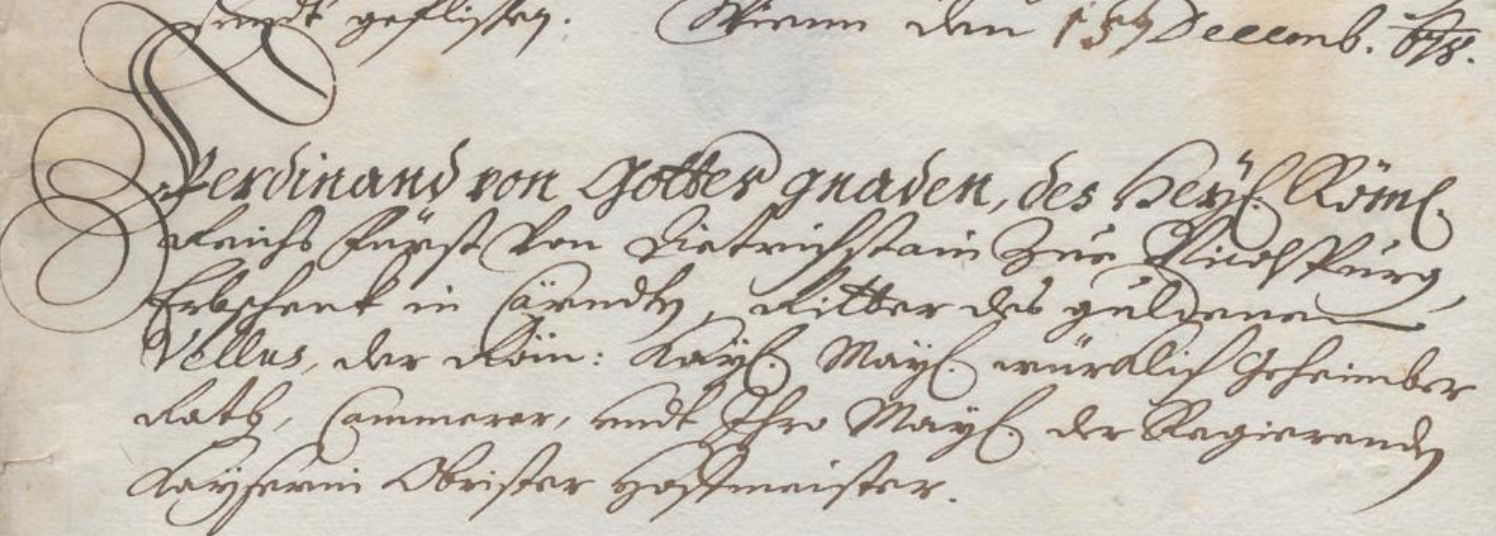 geflissen. Wienn den 15 Decemb. 678.
Ferdinand von Gottes gnaden, des Heyl. Röml.
Reichs Fürst von Dietrichstain Zue Nicolspurg,
Erbschenk in Cärndten, Ritter des guldenen
Vellus, der Röm: Kayl. Mayl. würklich Geheimber
Rath, Cammerer, undt Ihro Mayl. der Regierenden
Kayserin Obrister Hoffmeister.